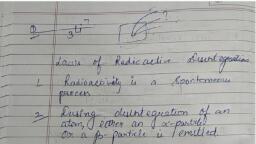 Q 3Li7
Laws of Radioactive Disintegration
1. Radioactivity is a Spontaneous
process
2. During disintegration of an
atom, either an α-particle
Or a β-particle is emitted